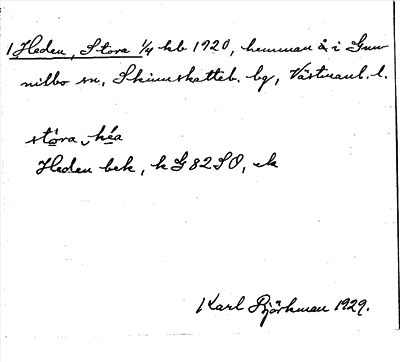 1 Heden, Stora 1/4 kb 1920, hemman å i Gun-
nilbo sn, Skinnskatteb. bg, Västmanl. l.
stora héa
Heden bek, k G 82 SO, ek
Karl Björkman 1929.